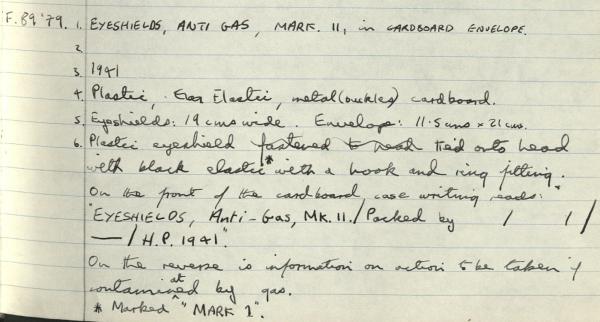 F.89'79. 1. EYESHIELDS, ANTI GAS, MARK. II, in CARDBOARD ENVELOPE.
2.
3. 1941
4. Plastic, Elastic, metal (buckles) cardboard.
5. Eyeshields: 19 cms wide. Envelope: 11.5 cms x 21 cms.
6. Plastic eyeshield fastened to head tied onto head
with black elastic * with a hook and ring fitting.
On the front of the cardboard, case writing reads:
"EYESHIELDS, Anti-Gas, MK. II. / Packed by / 1 /
— / H.P. 1941".
On the reverse is information on action to be taken if
contaminated by gas.
* Marked "MARK 1".